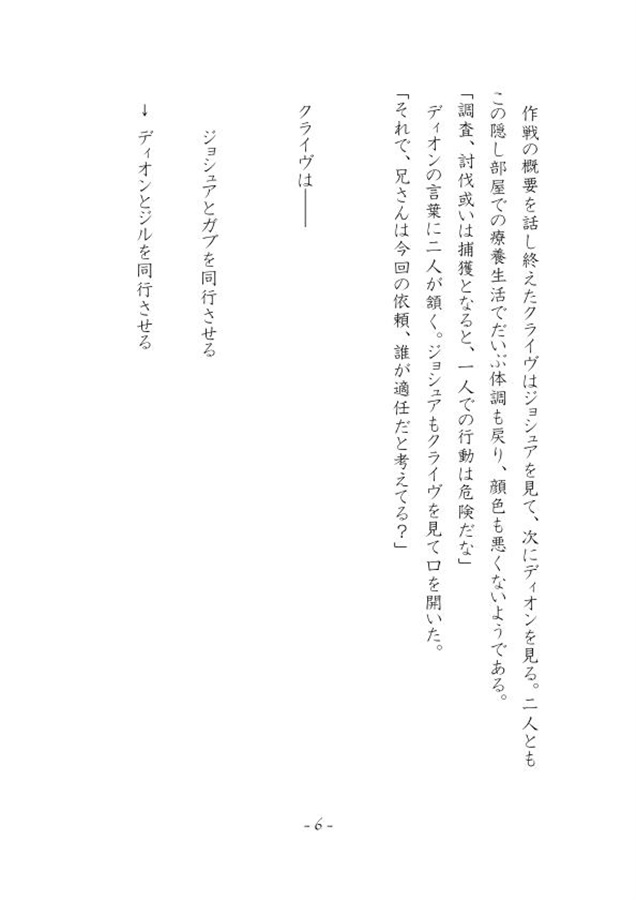 作戦の概要を話し終えたクライヴはジョシュアを見て、次にディオンを見る。二人とも
この隠し部屋での療養生活でだいぶ体調も戻り、顔色も悪くないようである。
「調査、討伐或いは捕獲となると、一人での行動は危険だな」
ディオンの言葉に二人が頷く。ジョシュアもクライヴを見て口を開いた。
「それで、兄さんは今回の依頼、誰が適任だと考えてる？」
クライヴは――
ジョシュアとガブを同行させる
→ ディオンとジルを同行させる
- 6 -